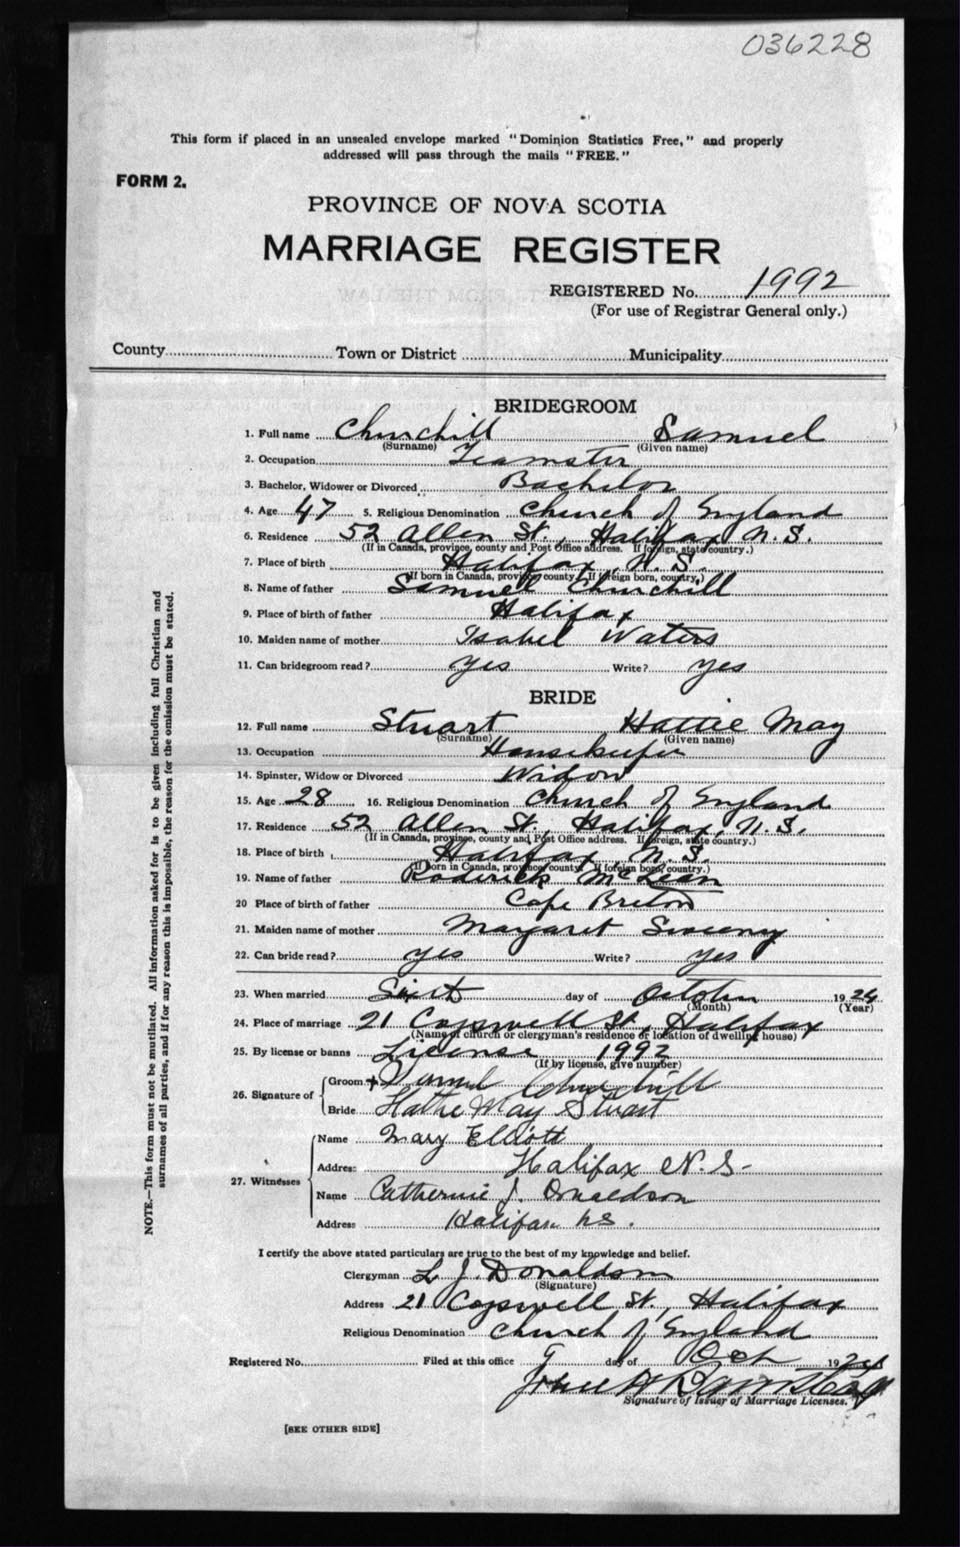 036228
This form if placed in an unsealed envelope marked "Dominion Statistics Free," and properly
addressed will pass through the mails "FREE."
FORM 2.
PROVINCE OF NOVA SCOTIA
MARRIAGE REGISTER
REGISTERED No. 1992
(For use of Registrar General only.)
County Town or District Municipality
BRIDEGROOM
1. Full name Churchill Samuel
(Surname) (Given name)
2. Occupation Teamster
3. Bachelor, Widower or Divorced Bachelor
4. Age 47 5. Religious Denomination Church of England
6. Residence 52 Allen St., Halifax, N.S.
(If in Canada, province, county and Post Office address. If foreign, state country.)
7. Place of birth Halifax, N.S.
(If born in Canada, province county. If foreign born, country.)
8. Name of father Samuel Churchill
9. Place of birth of father Halifax
10. Maiden name of mother Isabel Waters
11. Can bridegroom read? yes Write? yes
BRIDE
12. Full name Stuart Hattie May
(Surname) (Given name)
13. Occupation Housekeeper
14. Spinster, Widow or Divorced Widow
15. Age 28 16. Religious Denomination Church of England
17. Residence 52 Allen St., Halifax, N.S.
(If in Canada, province, county and Post Office address. If foreign, state country.)
18. Place of birth Halifax, N.S.
(If born in Canada, province county. If foreign born, country.)
19. Name of father Roderick McLean
20 Place of birth of father Cape Breton
21. Maiden name of mother Margaret Sweeny
22. Can bride read? yes Write? yes
23. When married Sixth day of October 1924
(Month) (Year)
24. Place of marriage 21 Cogswell St., Halifax
(Name of church or clergyman's residence or location of dwelling house)
25. By license or banns License 1992
(If by license, give number)
26. Signature of Groom + Samuel Churchill
Bride Hattie May Stuart
27. Witnesses Name Mary Elliott
Address Halifax N.S-
Name Catherine J. Donaldson
Address Halifax NS.
I certify the above stated particulars are true to the best of my knowledge and belief.
Clergyman L J. Donaldson
(Signature)
Address 21 Cogswell St., Halifax
Religious Denomination Church of England
Registered No. Filed at this office 9 day of Oct 1924
Signature of Issuer of Marriage Licenses.
[SEE OTHER SIDE]
NOTE.—This form must not be mutilated. All information asked for is to be given including full Christian and
surnames of all parties, and if for any reason this is impossible, the reason for the omission must be stated.